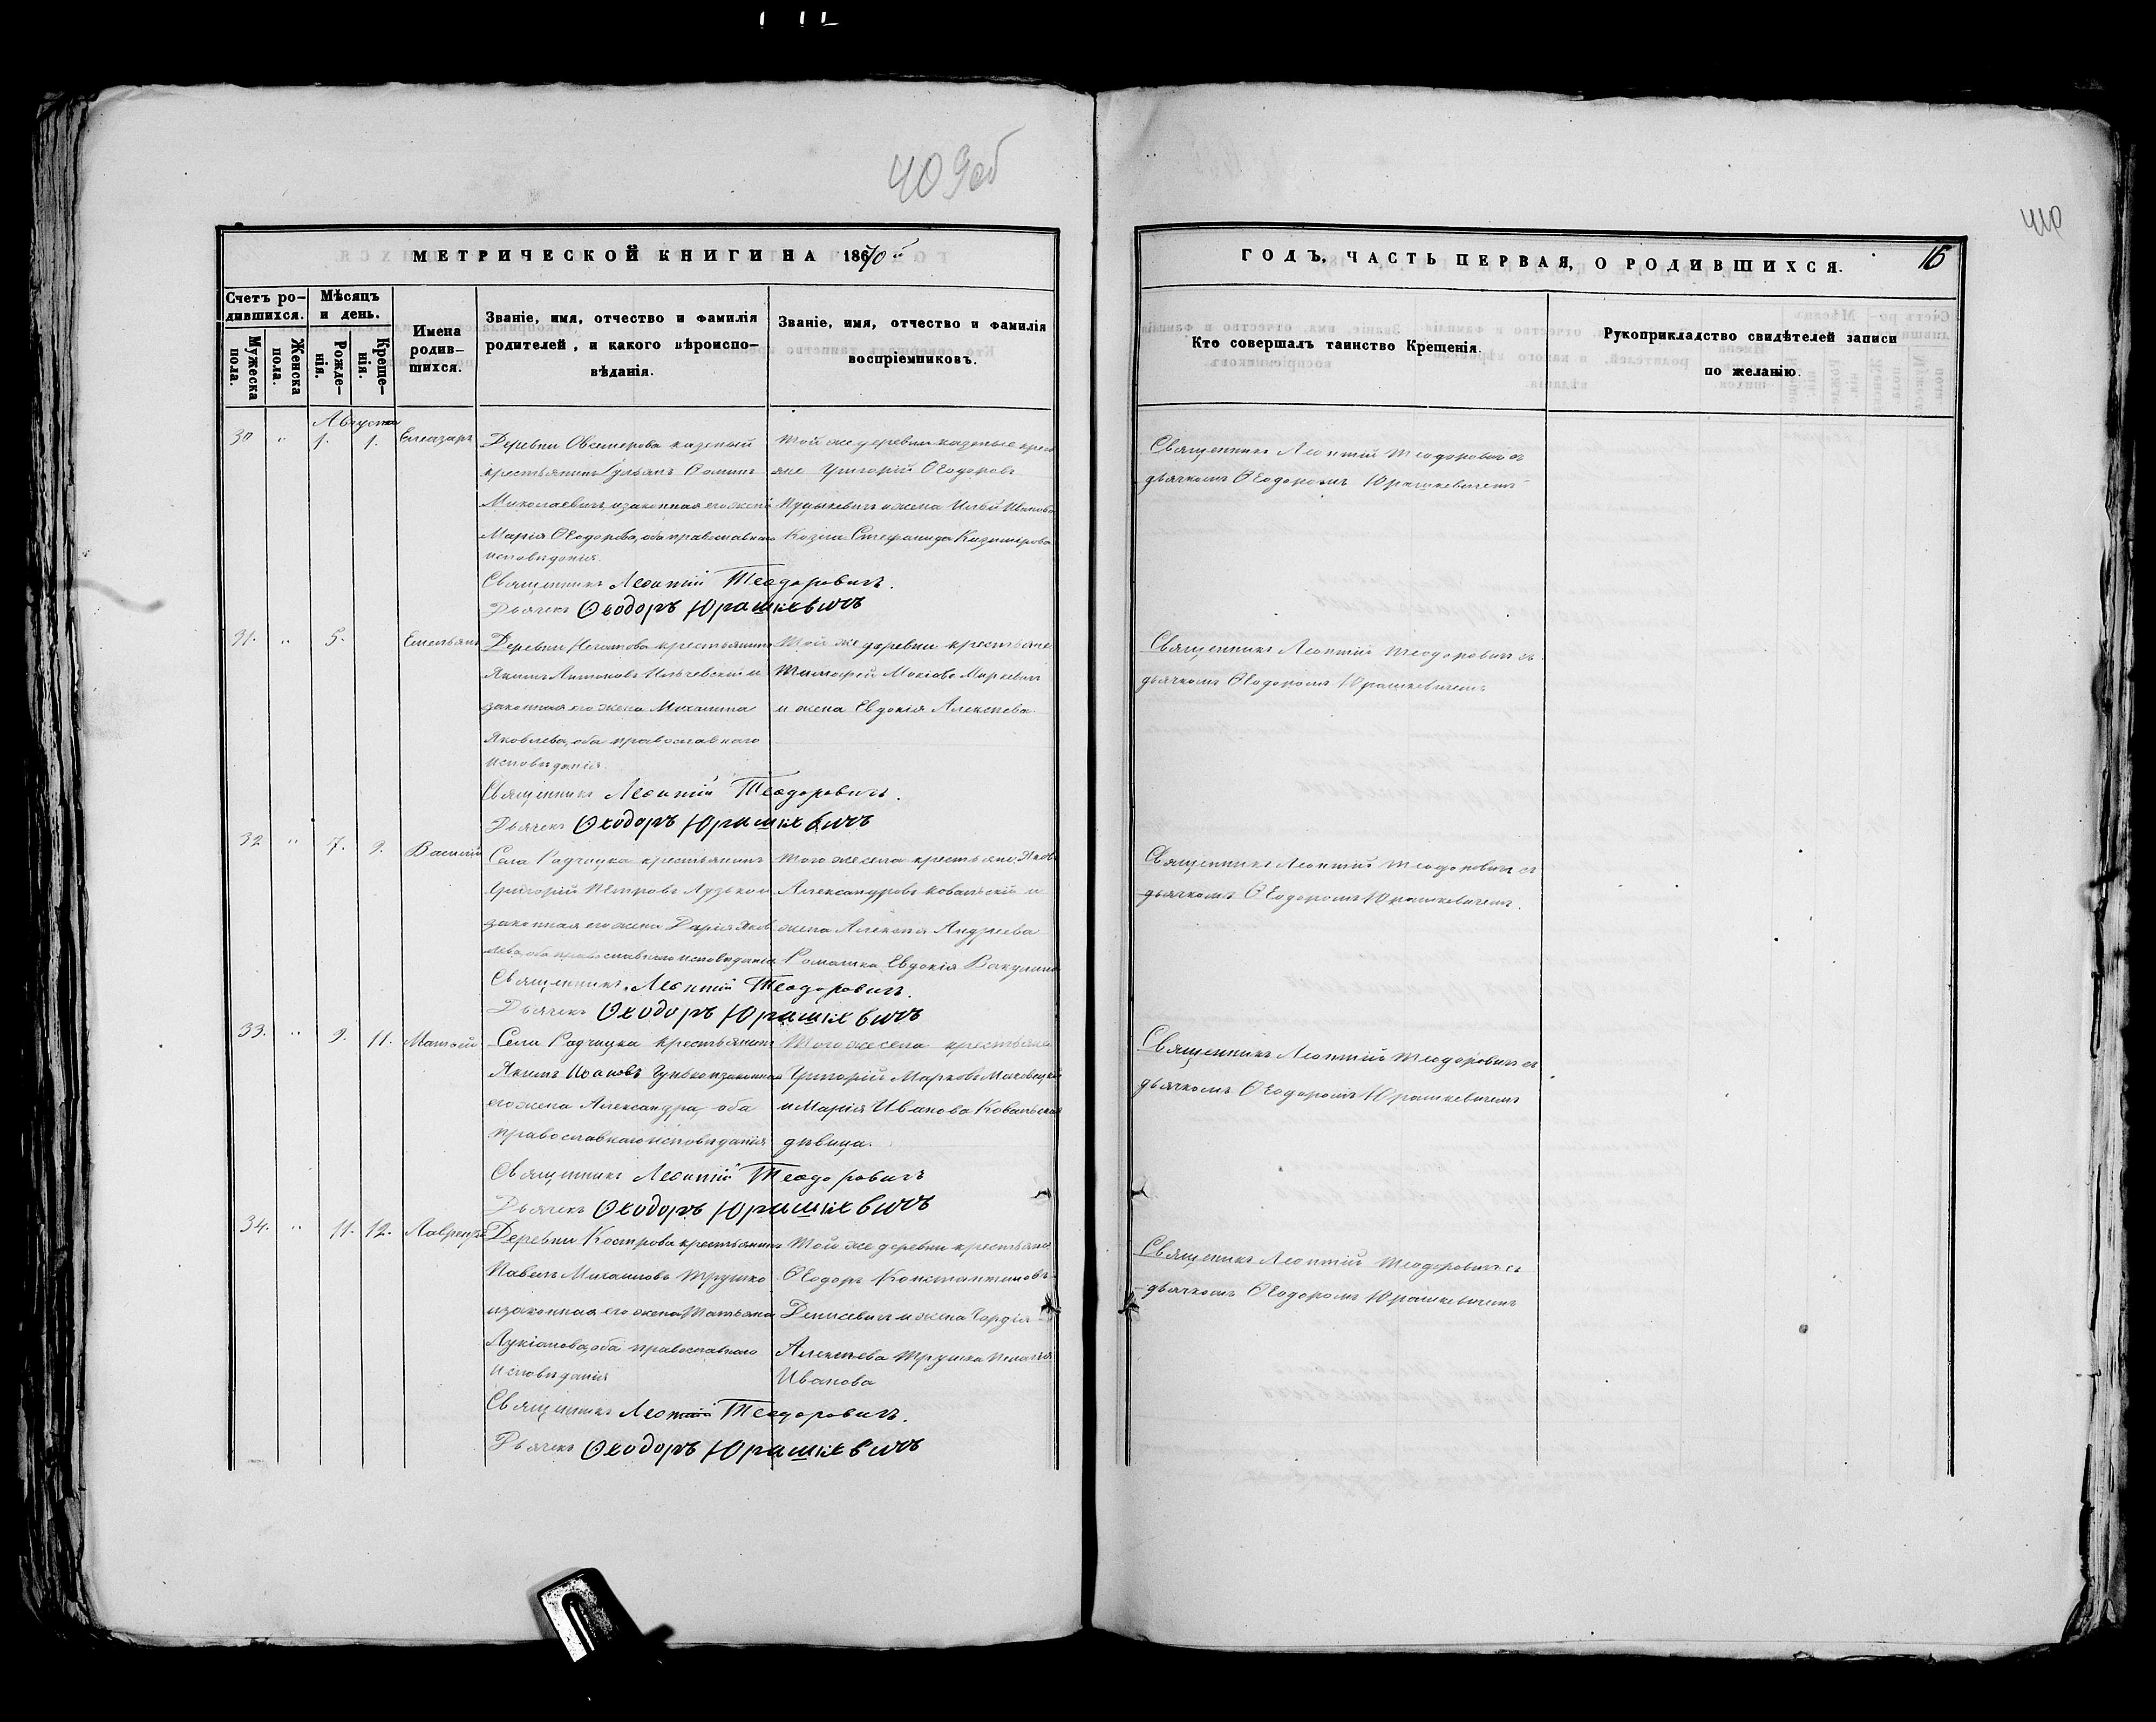 409об
МЕТРИЧЕСКОЙ КНИГИ НА 1870
Счетъ ро-
дившихся.
Мѣсяцъ
и день.
Мужеска
пола.
Женска
пола.
Рожде-
нія.
Креще-
нія.
Имена
родив-
шихся.
Званіе, имя, отчество и фамилія
родителей, и какого вѣроиспо-
вѣданія.
Званіе, имя, отчество и фамилія
воспріемниковъ.
Августа
30 " 1. 1. Елеазаръ
Деревни казеный
крестьянинъ Ѳоминъ
Миколаевичъ и законная его жена
Марія Ѳеодорова, оба православнаго
исповѣданія.
Той же деревни казеные крест
яне Григорій Ѳеодоровъ
и жена Илья Иванова
Козла Стефанида Казимірова
Священникъ Леонтій Теодоровичъ.
Дьячекъ Ѳеодоръ Юрашкевичъ
31. " 5. Емельянъ
Деревни крестьянинъ
Якимъ Антоновъ Ильчевскій и
законная его жена Михалина
Яковлева, оба православнаго
исповѣданія.
Той же деревни крестьяне
Тимофей Маркевичъ
и жена Евдокія Алексѣева.
Священникъ Леонтій Теодоровичъ.
Дьячекъ Ѳеодоръ Юрашкевичъ
32 " 7. 9. Василій
Села Радчицка крестьянинъ
Григорій Петровъ Лузько и
законная его жена Дарія Яков
лева, оба православнаго исповѣданія
Того же села крестьяне, Яковъ
Александровъ Ковальскій и
жена Алексѣя Андреева
Ромашка Евдокія Вакулина
Священникъ Леонтій Теодоровичъ.
Дьячекъ Ѳеодоръ Юрашкевичъ
33. " 9. 11. Матѳей
Села Радчицка крестьянинъ
Якимъ Иоановъ Гунько и законная
его жена Александра, оба
православнаго исповѣданія
Того же села крестьяне
Григорій Марковъ
и Марія Иванова Ковальская
дѣвица.
Священникъ Леонтій Теодоровичъ
Дьячекъ Ѳеодоръ Юрашкевичъ
34. " 11. 12. Лаврентій
Деревни Кострова крестьянинъ
Павелъ Михайловъ Трушко
и законная его жена Татьяна
Лукіанова, оба православнаго
исповѣданія
Той же деревни крестьяне
Ѳеодоръ Константиновъ
Денисевичъ и жена Гордія
Алексѣева Трушка Пелагія
Иванова
Священникъ Леонтій Теодоровичъ.
Дьячекъ Ѳеодоръ Юрашкевичъ
410
ГОДЪ, ЧАСТЬ ПЕРВАЯ, О РОДИВШИХСЯ.
16
Кто совершалъ таинство Крещенія.
Рукоприкладство свидѣтелей записи
по желанію.
Священникъ Леонтій Теодоровичъ съ
дьячкомъ Ѳеодоромъ Юрашкевичемъ
Священникъ Леонтій Теодоровичъ съ
дьячкомъ Ѳеодоромъ Юрашкевичемъ
Священникъ Леонтій Теодоровичъ съ
дьячкомъ Ѳеодоромъ Юрашкевичемъ.
Священникъ Леонтій Теодоровичъ съ
дьячкомъ Ѳеодоромъ Юрашкевичемъ
Священикъ Леонтій Теодоровичъ съ
дьячкомъ Ѳеодоромъ Юрашкевичемъ